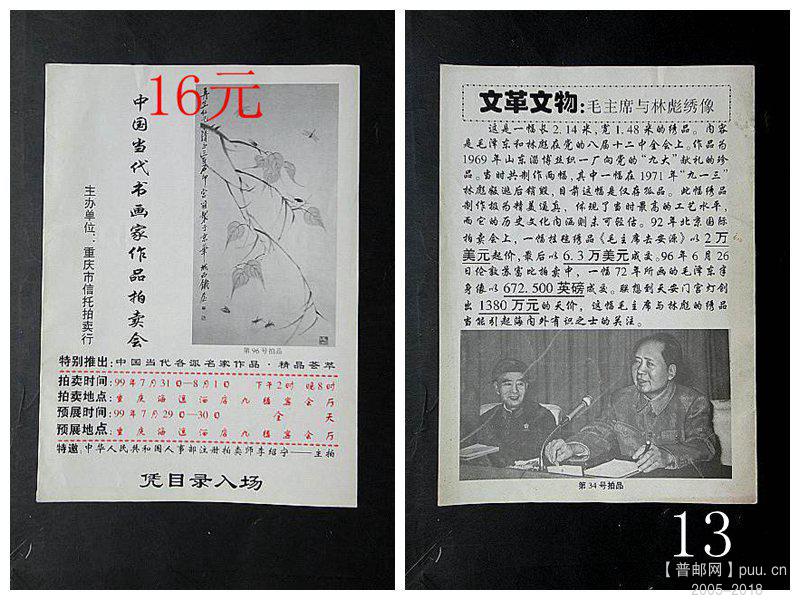 16元
中国当代书画家作品拍卖会
主办单位：重庆市信托拍卖行
第96号拍品
特别推出:中国当代各派名家作品·精品荟萃
拍卖时间:99年7月31日—8月1日 下午2时 晚8时
拍卖地点:重庆海逸酒店九楼宴会厅
预展时间:99年7月29日—30日 全天
预展地点:重庆海逸酒店九楼宴会厅
特邀:中华人民共和国人事部注册拍卖师李绍宁——主拍
凭目录入场
文革文物:毛主席与林彪绣像
这是一幅长2.14米,宽1.48米的绣品。内容
是毛泽东和林彪在党的八届十二中全会上。作品为
1969年山东淄博丝织一厂向党的“九大”献礼的珍
品。当时共制作两幅,其中一幅在1971年“九一三”
林彪叛逃后销毁,目前这幅是仅存孤品。此幅绣品
制作极为精美逼真,体现了当时最高的工艺水平,
而它的历史文化内涵则未可轻估。92年北京国际
拍卖会上,一幅挂毯绣品《毛主席去安源》以2万
美元起价,最后以6.3万美元成交。96年6月26
日伦敦苏富比拍卖中,一幅72年所画的毛泽东半
身像以672.500英磅成交。联想到天安门宫灯创
出1380万元的天价,这幅毛主席与林彪的绣品
当能引起海内外有识之士的关注。
第34号拍品
13
【普邮网】puu.cn
2005-2018